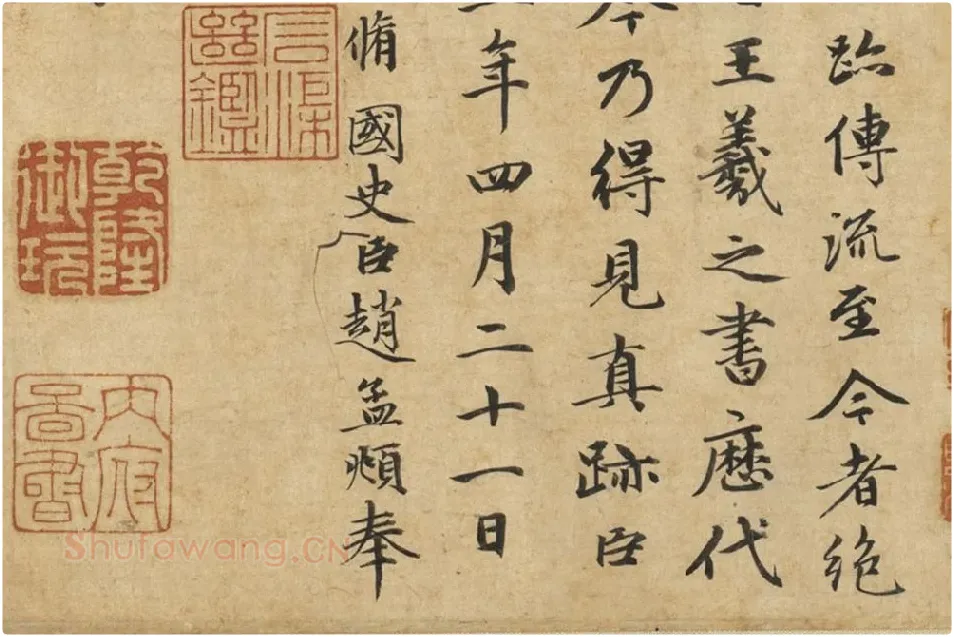 跡傳流至今者絶
王羲之書歷代
今乃得見真跡臣
年四月二十一日
脩國史臣趙孟頫奉
石渠繼鑑
乾隆御玩
内府啚書
Shufawang.CN